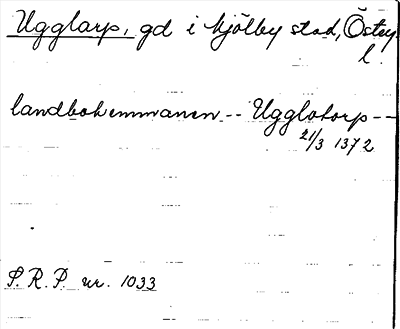 Ugglarp, gd i Mjölby stad, Östg.
l.
landbohemmanen -- Ugglotorp --
21/3 1372
S. R. P. nr. 1033